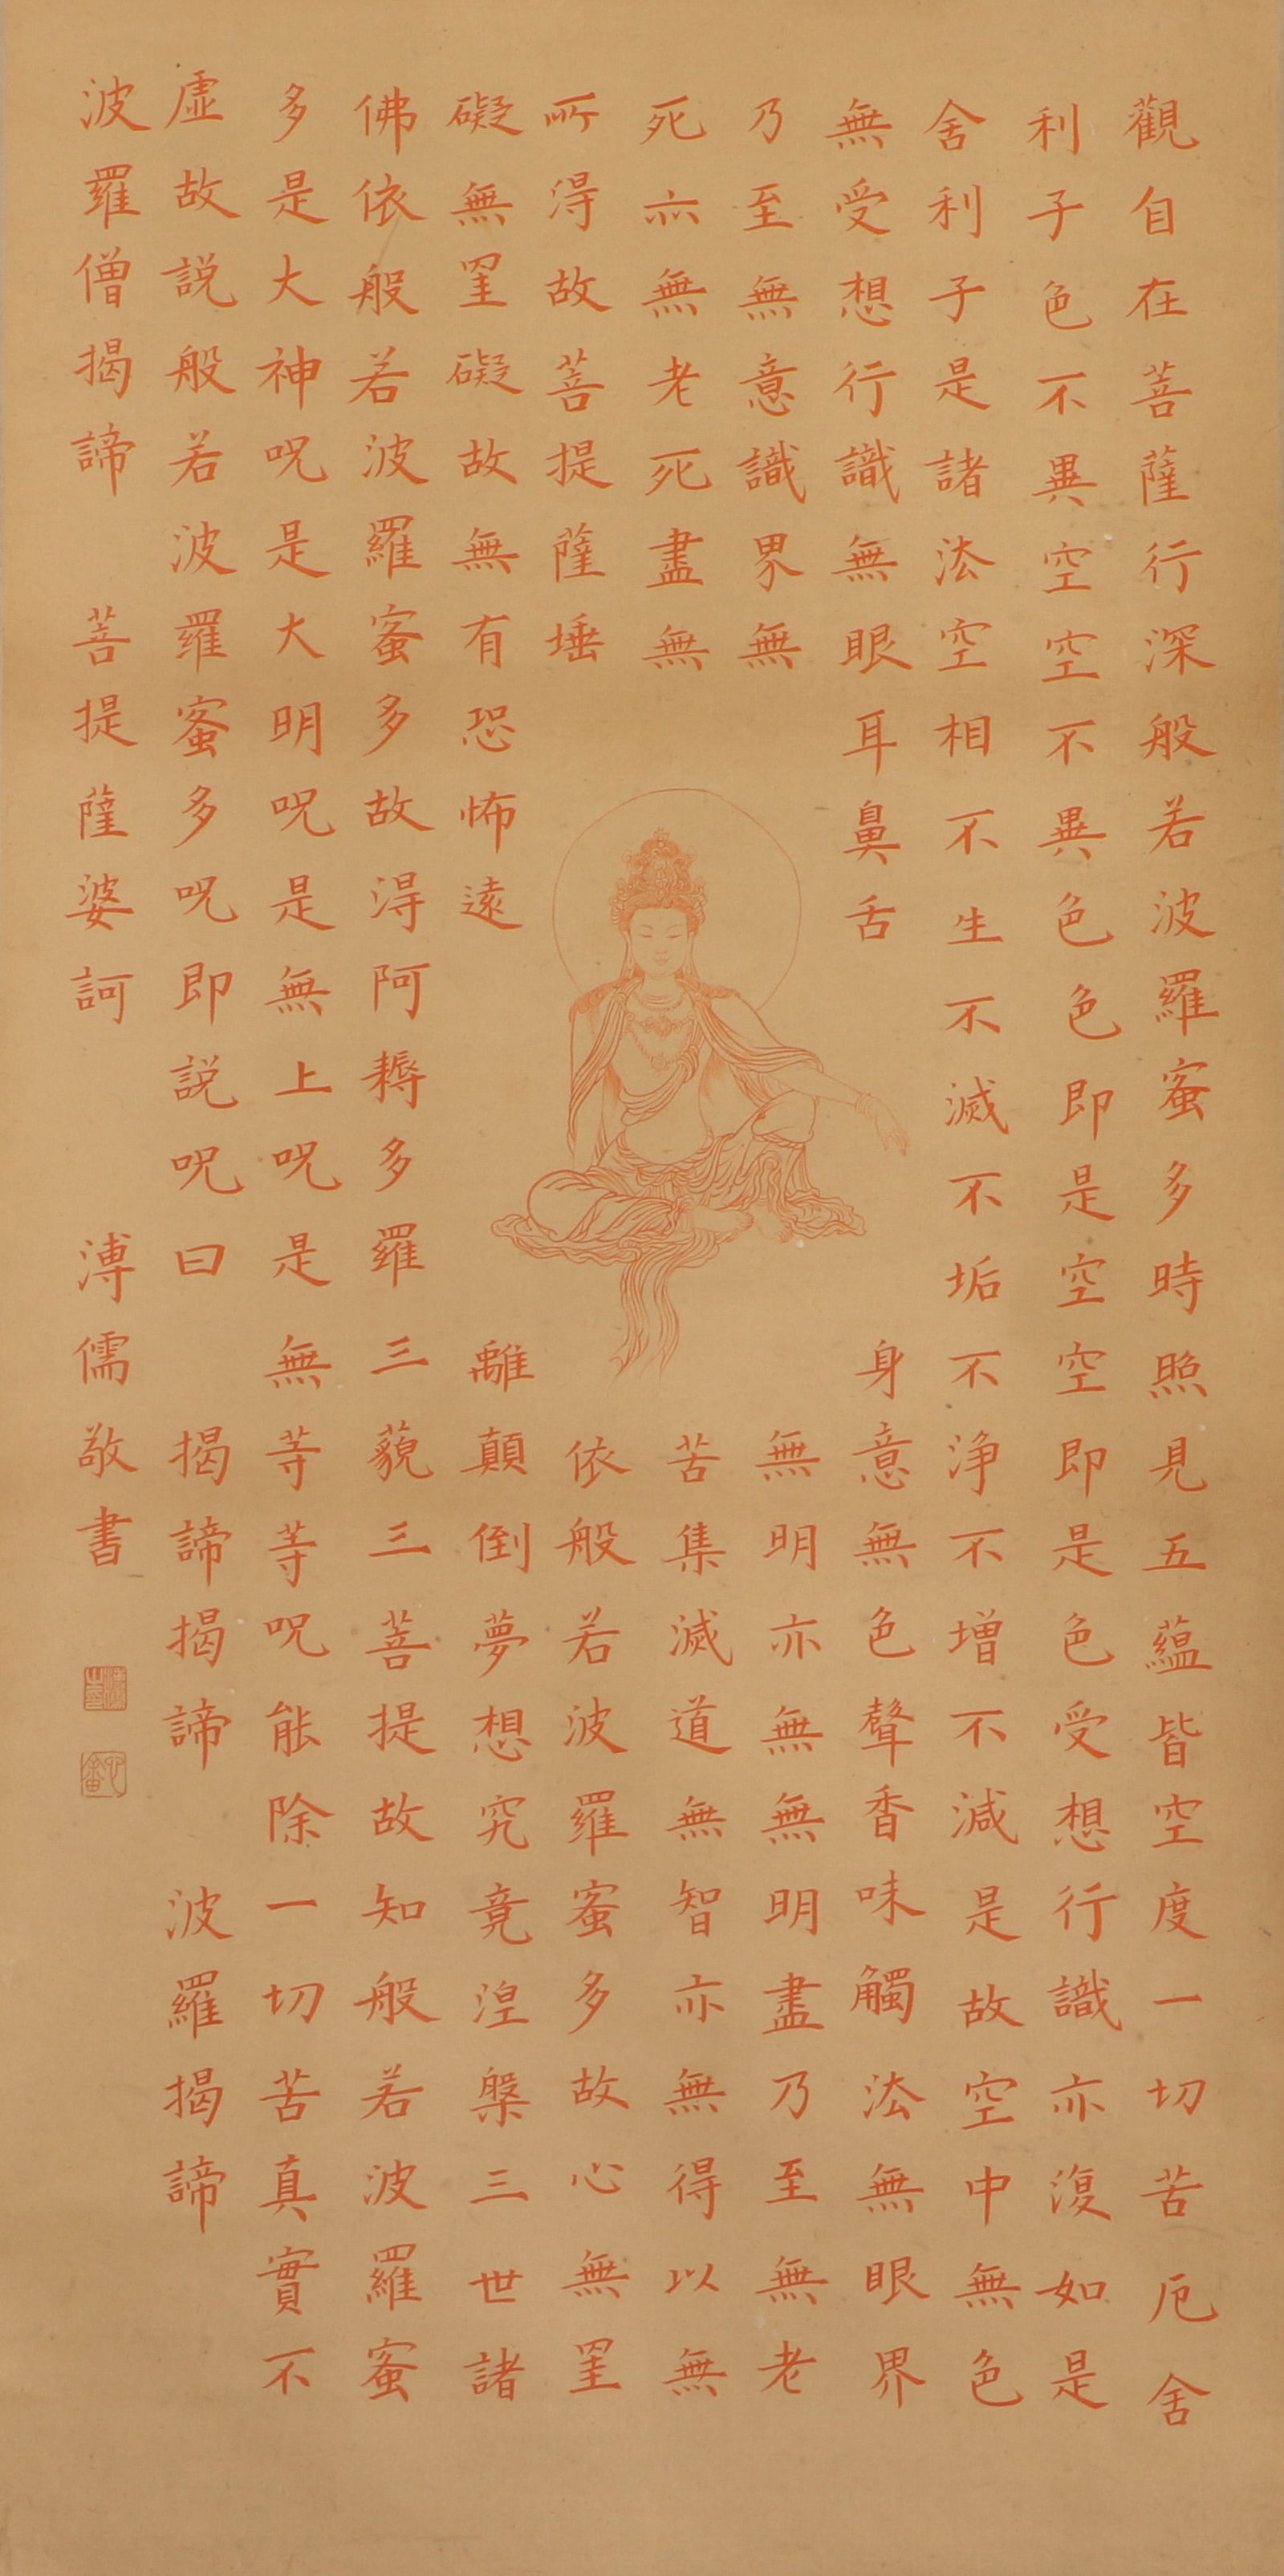 觀自在菩薩行深般若波羅蜜多時照見五蘊皆空度一切苦厄舍
利子色不異空空不異色色即是空空即是色受想行識亦復如是
舍利子是諸法空相不生不滅不垢不淨不增不減是故空中無色
無受想行識無眼耳鼻舌身意無色聲香味觸法無眼界
乃至無意識界無無明亦無無明盡乃至無老
死亦無老死盡無苦集滅道無智亦無得以無
所得故菩提薩埵依般若波羅蜜多故心無罣
礙無罣礙故無有恐怖遠離顛倒夢想究竟涅槃三世諸
佛依般若波羅蜜多故得阿耨多羅三藐三菩提故知般若波羅蜜
多是大神呪是大明呪是無上呪是無等等呪能除一切苦真實不
虛故説般若波羅蜜多呪即説呪曰 揭諦揭諦 波羅揭諦
波羅僧揭諦 菩提薩婆訶 溥儒敬書